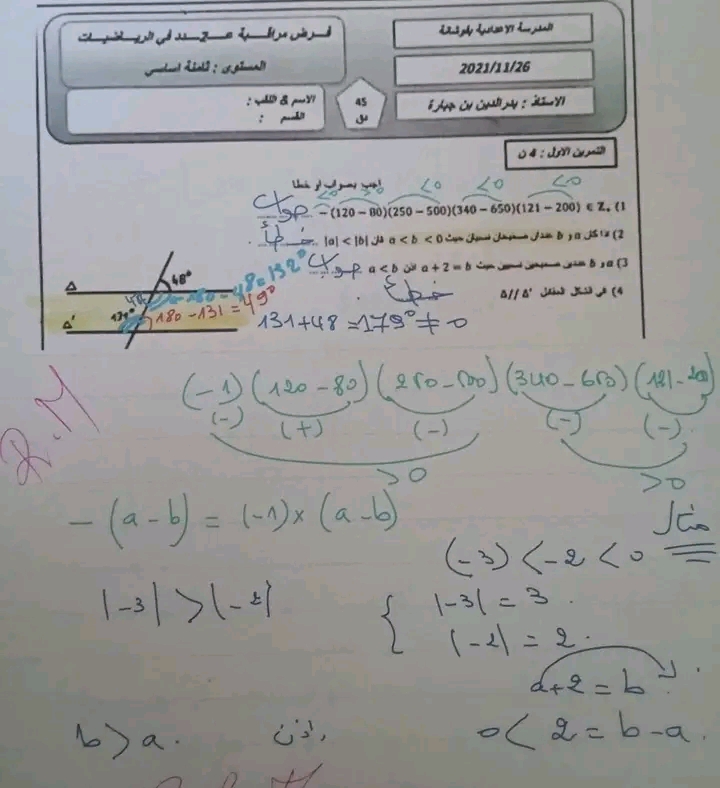 فرض مراقبة عـ2ـدد في الرياضيات
المستوى : ثامنة اساسي
الاسم & اللقب :
القسم :
45
دق
المدرسة الاعدادية بلوشانة
2021/11/26
الاستاذ : بدرالدين بن جبارة
التمرين الاول : 4 ن
اجب بصواب او خطا
<0 >0 <0 <0 <0
1) −(120 − 80)(250 − 500)(340 − 650)(121 − 200) ∈ ℤ₊ صواب
2) اذا كان a و b عددان صحيحان نسبيان حيث a < b < 0 فان |a| < |b| خطأ
3) a و b عددين صحيحين نسبيين حيث a + 2 = b اذن a < b صواب
4) في الشكل المقابل Δ // Δ' خطأ
Δ
48°
180 - 48 = 132°
Δ'
131°
180 - 131 = 49°
131 + 48 = 179° ≠ 0
(-1)(120 - 80)(250 - 500)(340 - 650)(121 - 200)
(-) (+) (-) (-) (-)
>0 >0
R.M
- (a - b) = (-1) x (a - b)
مثال
(-3) < -2 < 0
|-3| > |-2|
|-3| = 3.
|-2| = 2.
a + 2 = b
0 < 2 = b - a.
إذن
b > a.